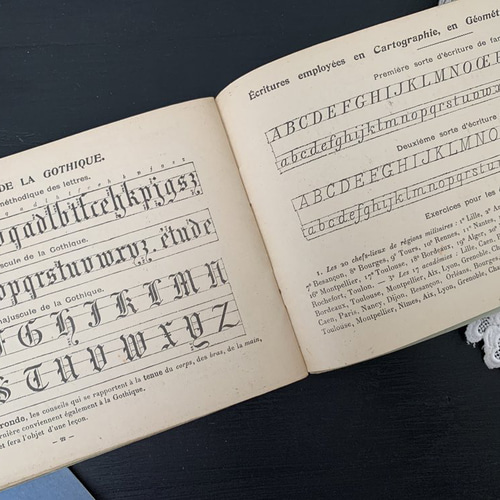 DE LA GOTHIQUE.
méthodique des lettres.
uscule de la Gothique.
opqrstuvwxyz. étude
majuscule de la Gothique.
F G H I J K L M N
S T U V W X Y Z
ronde, les conseils qui se rapportent à la tenue du corps, des bras, de la main,
dernière conviennent également à la Gothique.
et fera l'objet d'une leçon.
Écritures employées en Cartographie, en Géomét
Première sorte d'écriture de fan
A B C D E F G H I J K L M N O Œ P
a b c d e f g h i j k l m n o p q r s t u v w x
Deuxième sorte d'écriture
A B C D E F G H I J K L M N O
a b c d e f g h i j k l m n o p q r s t u v
Exercices pour les
1. Les 20 chefs-lieux de régions militaires : 1º Lille, 2º A
7º Besançon, 8º Bourges, 9º Tours, 10º Rennes, 11º Nantes,
16º Montpellier, 17º Toulouse, 18º Bordeaux, 19º Alger, 20º
Rochefort, Toulon. 3º Les 17 académies : Lille,
Bordeaux, Toulouse, Montpellier, Aix, Lyon, Grenoble, Ch
Caen, Paris, Nancy, Dijon, Besançon, Orléans, Bourges,
Toulouse, Montpellier, Nîmes, Aix, Lyon, Grenoble, Cham